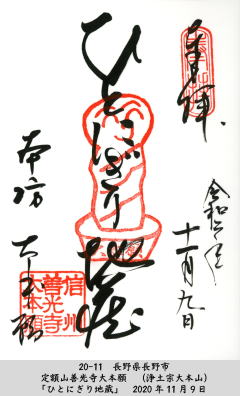 奉拝
令和二年
十一月九日
ひとにぎり地蔵
本坊
大本願
信州
善光寺
大本願
20-11 長野県長野市
定額山善光寺大本願 （浄土宗大本山）
「ひとにぎり地蔵」 2020年11月9日